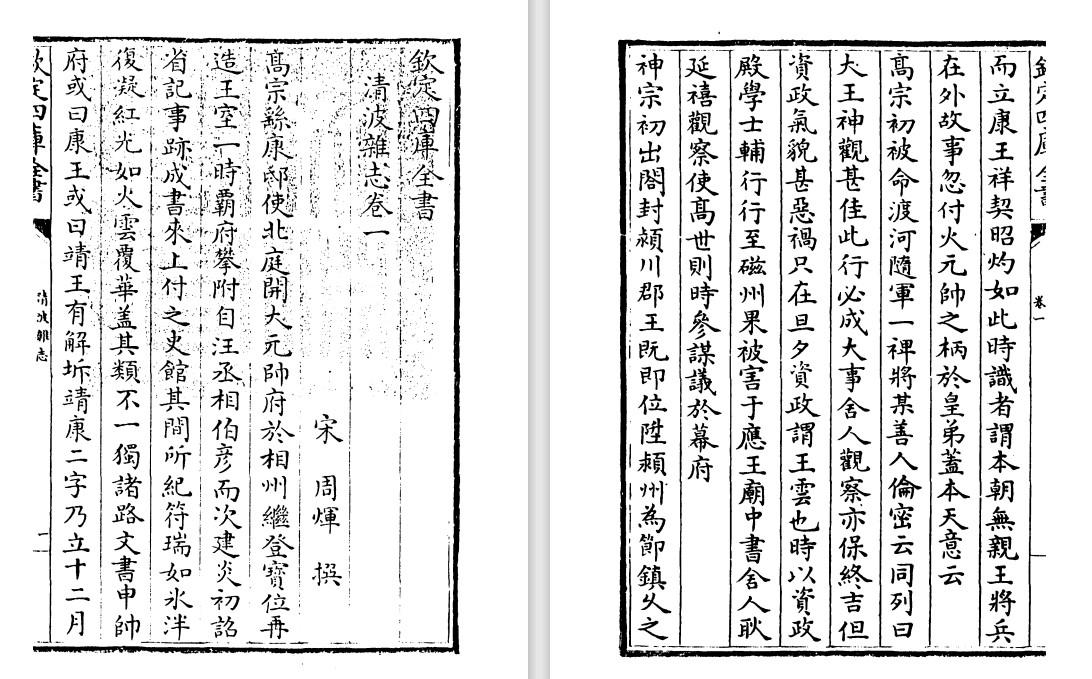 欽定四庫全書
清波雜志卷一
宋 周煇 撰
髙宗繇康邸使北庭開大元帥府於相州繼登寳位再
造王室一時霸府攀附自汪丞相伯彦而次建炎初詔
省記事跡成書來上付之史館其間所紀符瑞如氷泮
復凝紅光如火雲覆華盖其類不一獨諸路文書申帥
府或曰康王或曰靖王有解坼靖康二字乃立十二月
欽定四庫全書
清波雜志
一
欽定四庫全書
卷一
而立康王祥契昭灼如此時識者謂本朝無親王將兵
在外故事忽付大元帥之柄於皇弟蓋本天意云
髙宗初被命渡河隨軍一禆將某善人倫密云同列曰
大王神觀甚佳此行必成大事舍人觀察亦保終吉但
資政氣貌甚惡禍只在旦夕資政謂王雲也時以資政
殿學士輔行行至磁州果被害于應王廟中書舍人耿
延禧觀察使髙世則時參謀議於幕府
神宗初出閤封頴川郡王既即位陞頴州為節鎮久之